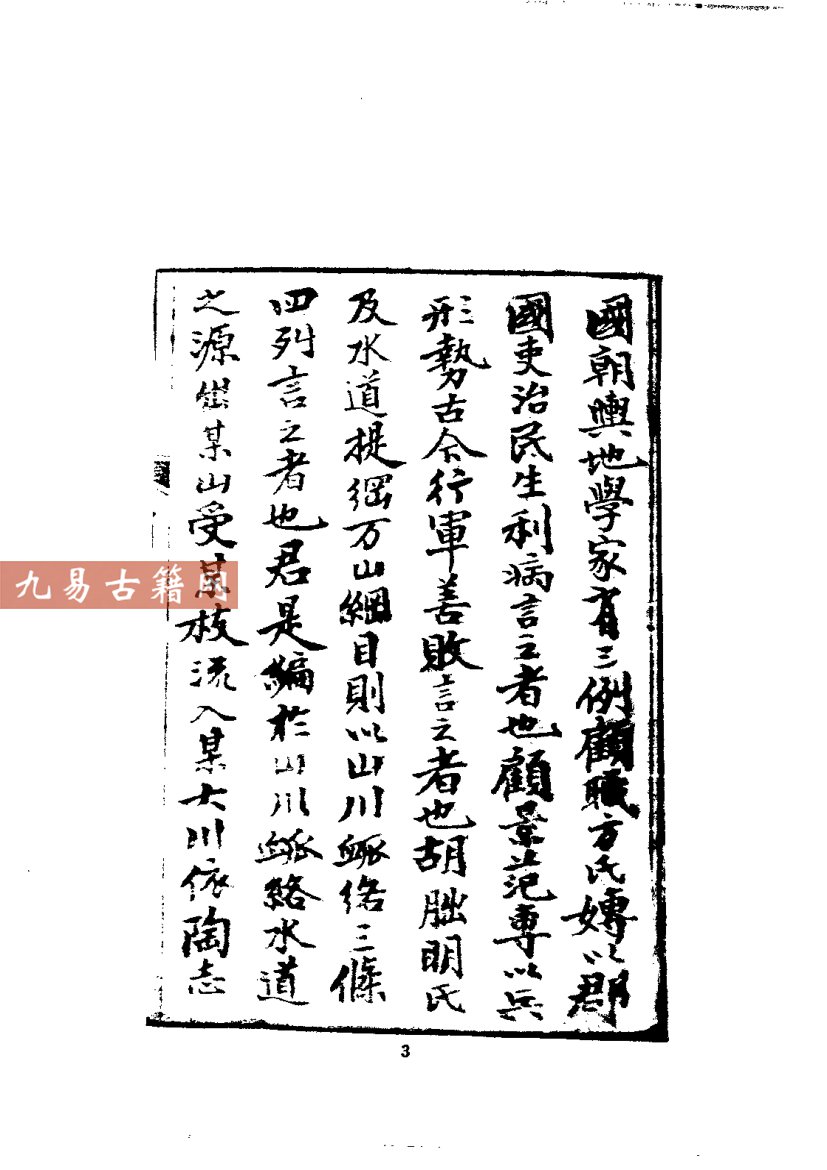 國朝輿地學家有三例顧職方氏專以郡
國吏治民生利病言之者也顧景范專以兵
形勢古今行軍善敗言之者也胡朏明氏
及水道提綱万山綱目則以山川䘑络三條
四列言之者也君是編於山川䘑絡水道
之源出某山受某枝流入某大川依陶志
九易古籍网
3